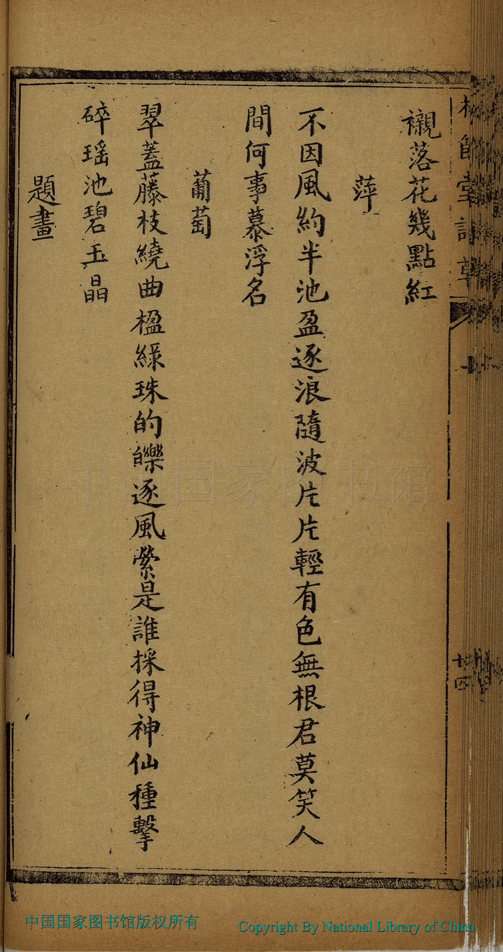 襯落花幾點紅
萍
不因風約半池盈逐浪隨波片片輕有色無根君莫笑人
間何事慕浮名
葡萄
翠蓋藤枝繞曲楹綠珠的皪逐風縈是誰採得神仙種擊
碎瑶池碧玉晶
題畫
廿四
中国国家图书馆
中国国家图书馆版权所有
Copyright By National Library of China